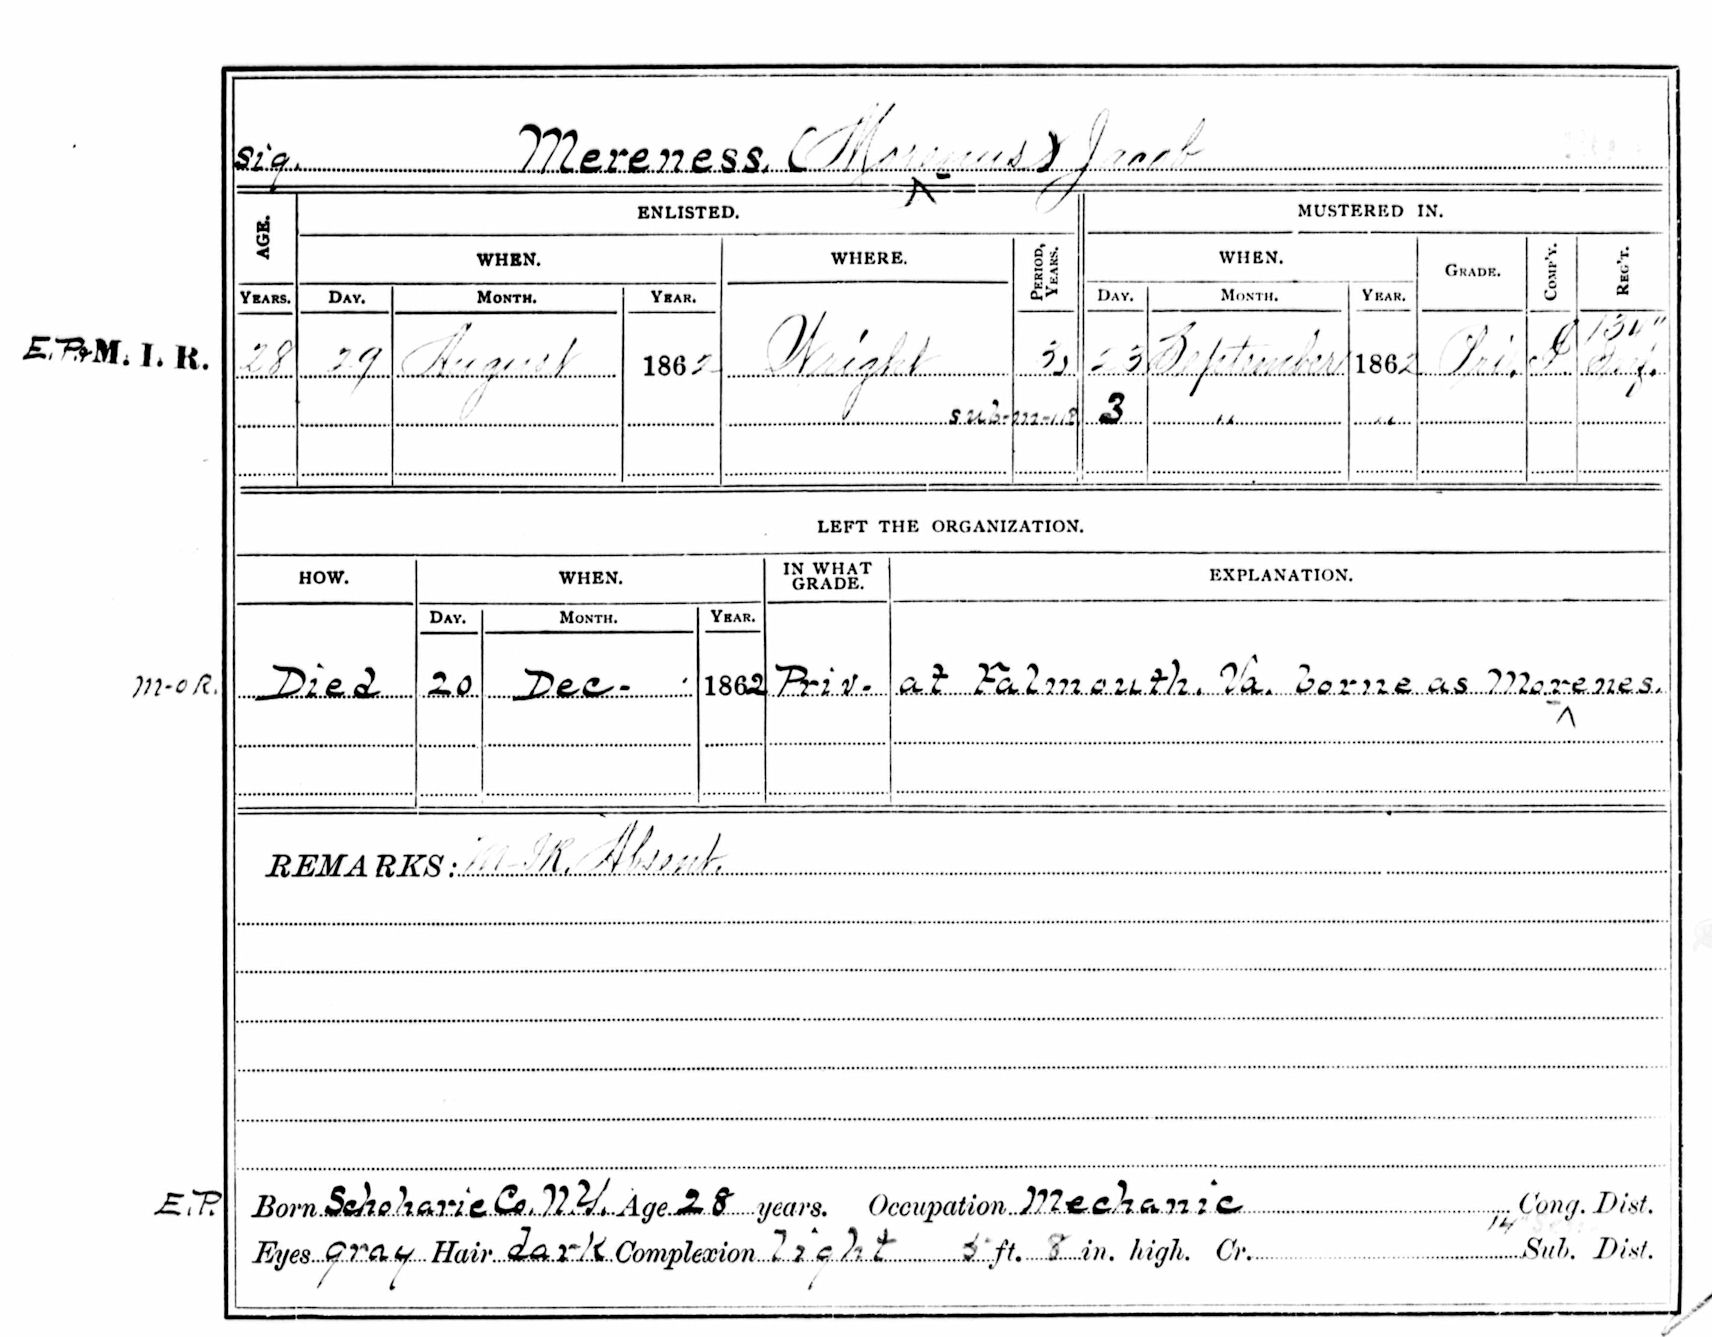 sig. Mereness, (Morenus) Jacob
AGE. ENLISTED. MUSTERED IN.
WHEN. WHERE. PERIOD, YEARS. WHEN. GRADE. COMP'Y. REG'T.
YEARS. DAY. MONTH. YEAR. DAY. MONTH. YEAR.
E.P. & M. I. R. 28 29 August 1862 Wright 3 23 September 1862 Pri. I 134" Inf.
sub-m-i-r 3 " "
LEFT THE ORGANIZATION.
HOW. WHEN. IN WHAT GRADE. EXPLANATION.
DAY. MONTH. YEAR.
M-O R. Died 20 Dec- 1862 Priv- at Falmouth, Va. borne as Morenes.
REMARKS: M-I R. Absent.
E.P. Born Schoharie Co. N.Y. Age 28 years. Occupation Mechanic Cong. Dist.
Eyes gray Hair dark Complexion light 5 ft. 8 in. high. Cr. 14" Sub. Dist.